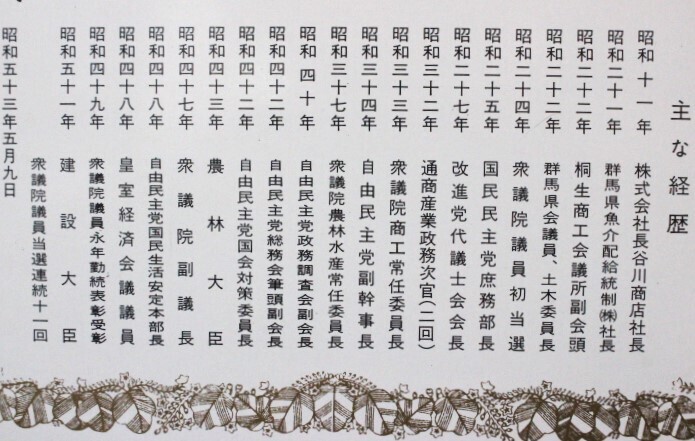 主な経歴
昭和十一年 株式会社長谷川商店社長
昭和二十一年 群馬県魚介配給統制㈱社長
昭和二十二年 桐生商工会議所副会頭
昭和二十二年 群馬県会議員、土木委員長
昭和二十四年 衆議院議員初当選
昭和二十五年 国民民主党庶務部長
昭和二十七年 改進党代議士会会長
昭和三十二年 通商産業政務次官(二回)
昭和三十三年 衆議院商工常任委員長
昭和三十四年 自由民主党副幹事長
昭和三十七年 衆議院農林水産常任委員長
昭和四十年 自由民主党政務調査会副会長
昭和四十二年 自由民主党総務会筆頭副会長
昭和四十二年 自由民主党国会対策委員長
昭和四十三年 農林大臣
昭和四十七年 衆議院副議長
昭和四十八年 自由民主党国民生活安定本部長
昭和四十八年 皇室経済会議議員
昭和四十九年 衆議院議員永年勤続表彰受彰
昭和五十一年 建設大臣
衆議院議員当選連続十一回
昭和五十三年五月九日